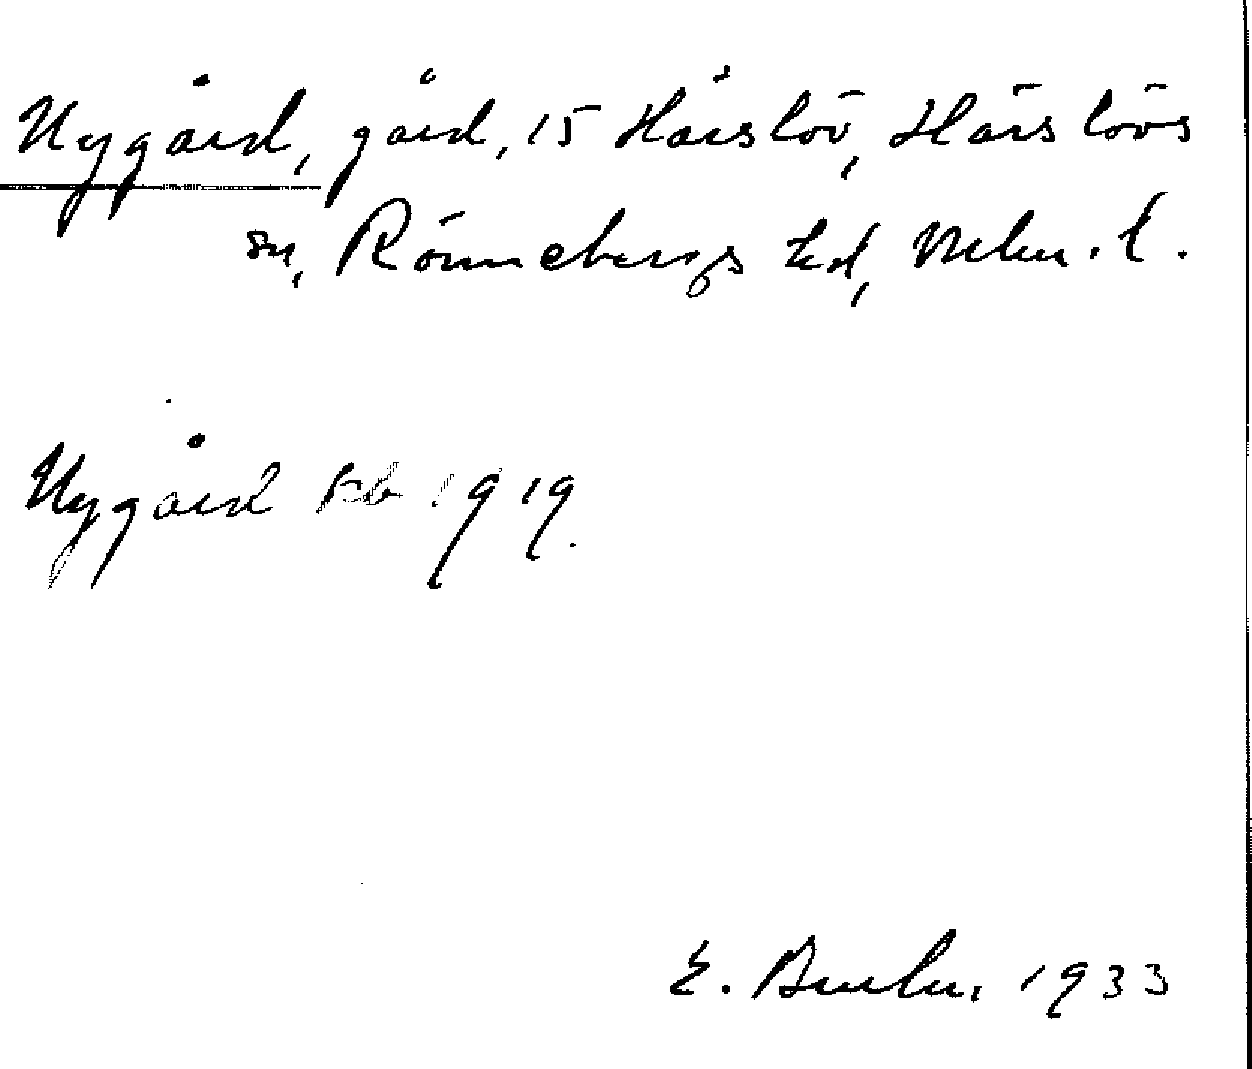 Nygård, gård, 15 Hårslöv, Härslövs
sn, Rönnebergs hd, Mlm. l.
Nygård kb 1919.
E. 1933